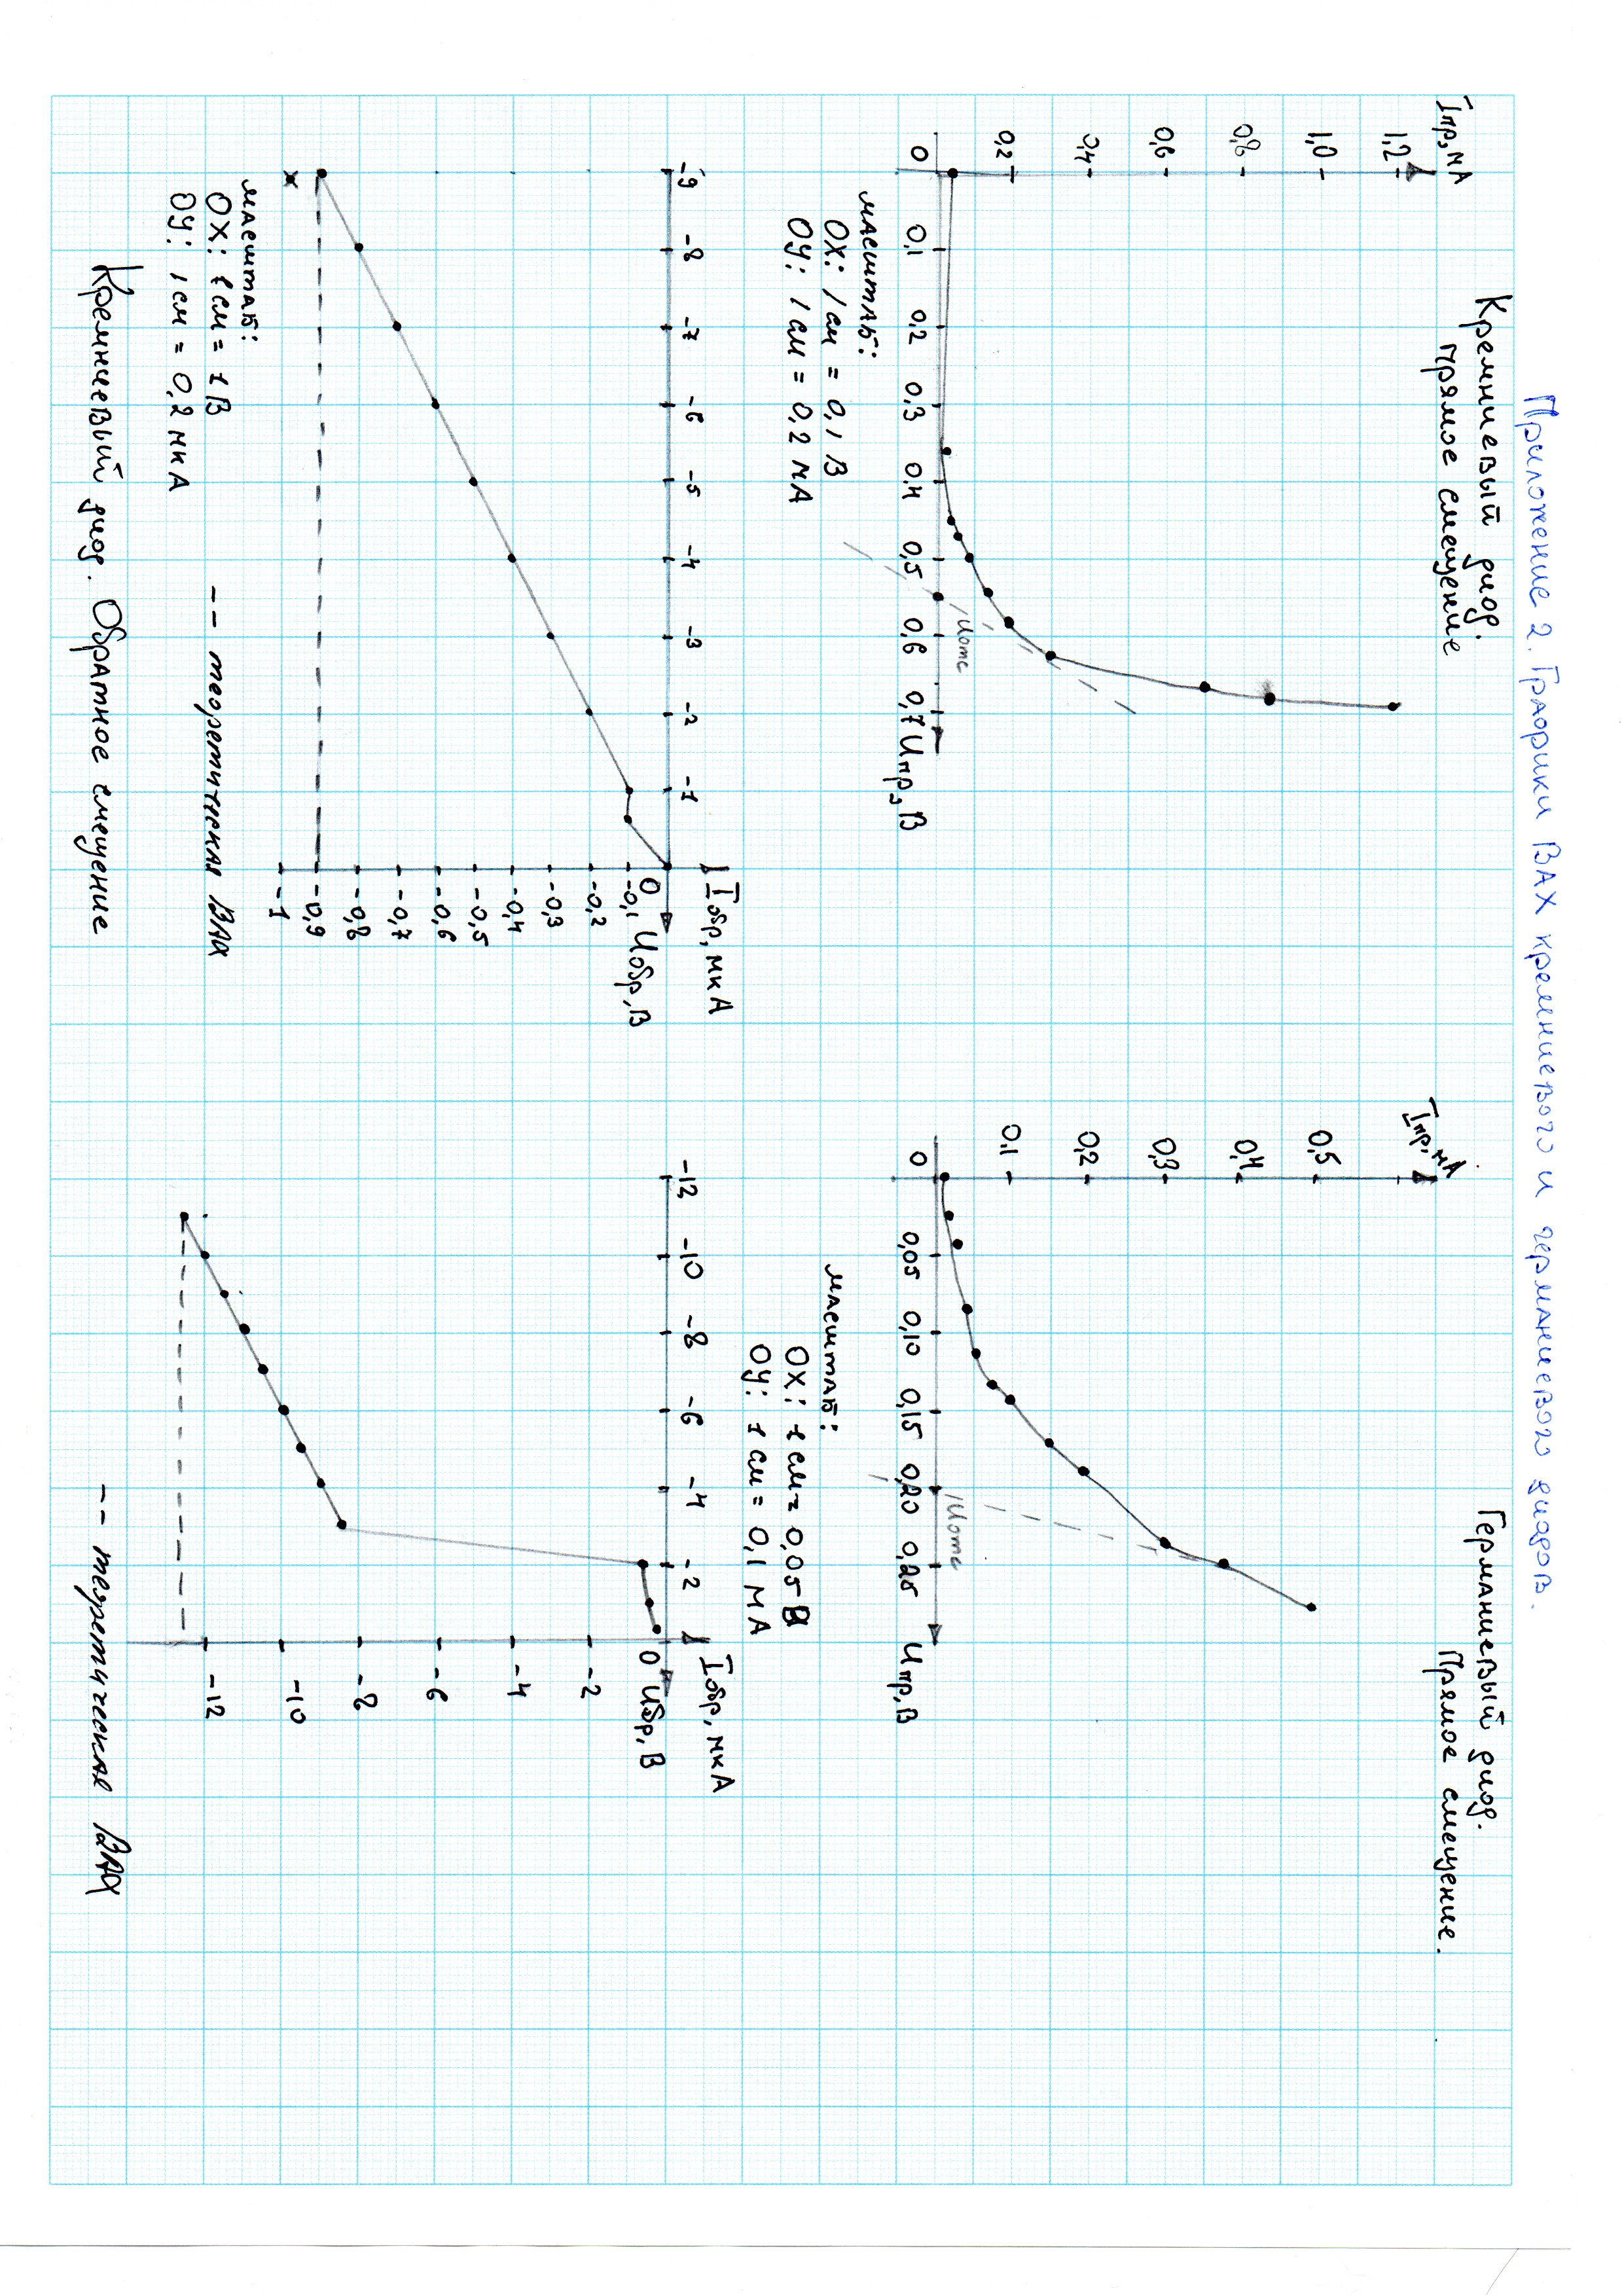 Приложение 2. Графики ВАХ кремниевого и германиевого диодов.
Кремниевый диод.
прямое смещение
Iпр, мА
1,2
1,0
0,8
0,6
0,4
0,2
0
0,1
0,2
0,3
0,4
0,5
0,6
0,7
Uпр, В
Uотс
масштаб:
OX: 1 см = 0,1 В
OY: 1 см = 0,2 мА
Германиевый диод.
Прямое смещение.
Iпр, мА
0,5
0,4
0,3
0,2
0,1
0
0,05
0,10
0,15
0,20
0,25
Uпр, В
Uотс
масштаб:
OX: 1 см = 0,05 В
OY: 1 см = 0,1 мА
Iобр, мкА
-9
-8
-7
-6
-5
-4
-3
-2
-1
0
Uобр, В
-0,1
-0,2
-0,3
-0,4
-0,5
-0,6
-0,7
-0,8
-0,9
-1
масштаб:
OX: 1 см = 1 В
OY: 1 см = 0,2 мкА
-- теоретическая ВАХ
Кремниевый диод. Обратное смещение
Iобр, мкА
-12
-10
-8
-6
-4
-2
0
Uобр, В
-2
-4
-6
-8
-10
-12
-- теоретическая ВАХ